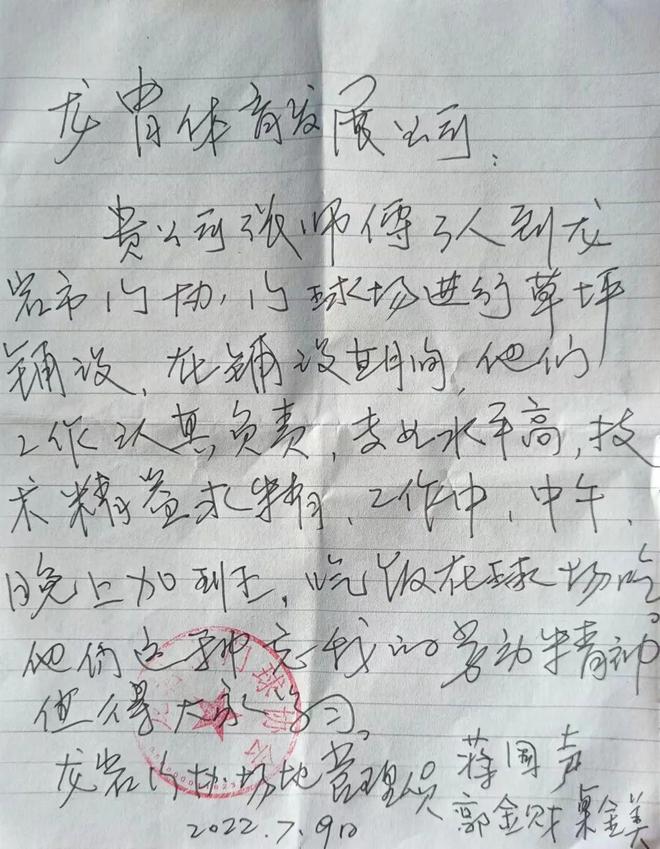 龙胄体育发展公司:
贵公司张师傅3人到龙
岩市门协,门球场进行草坪
铺设,在铺设期间,他们
工作认真负责,专业水平高,技
术精益求精,工作中,中午、
晚上加班,吃饭在球场吃。
他们这种忘我的劳动精神
值得大家学习。
龙岩门协场地管理员 蒋国声
郭金财 巢金美
2022.7.9日
门球协会